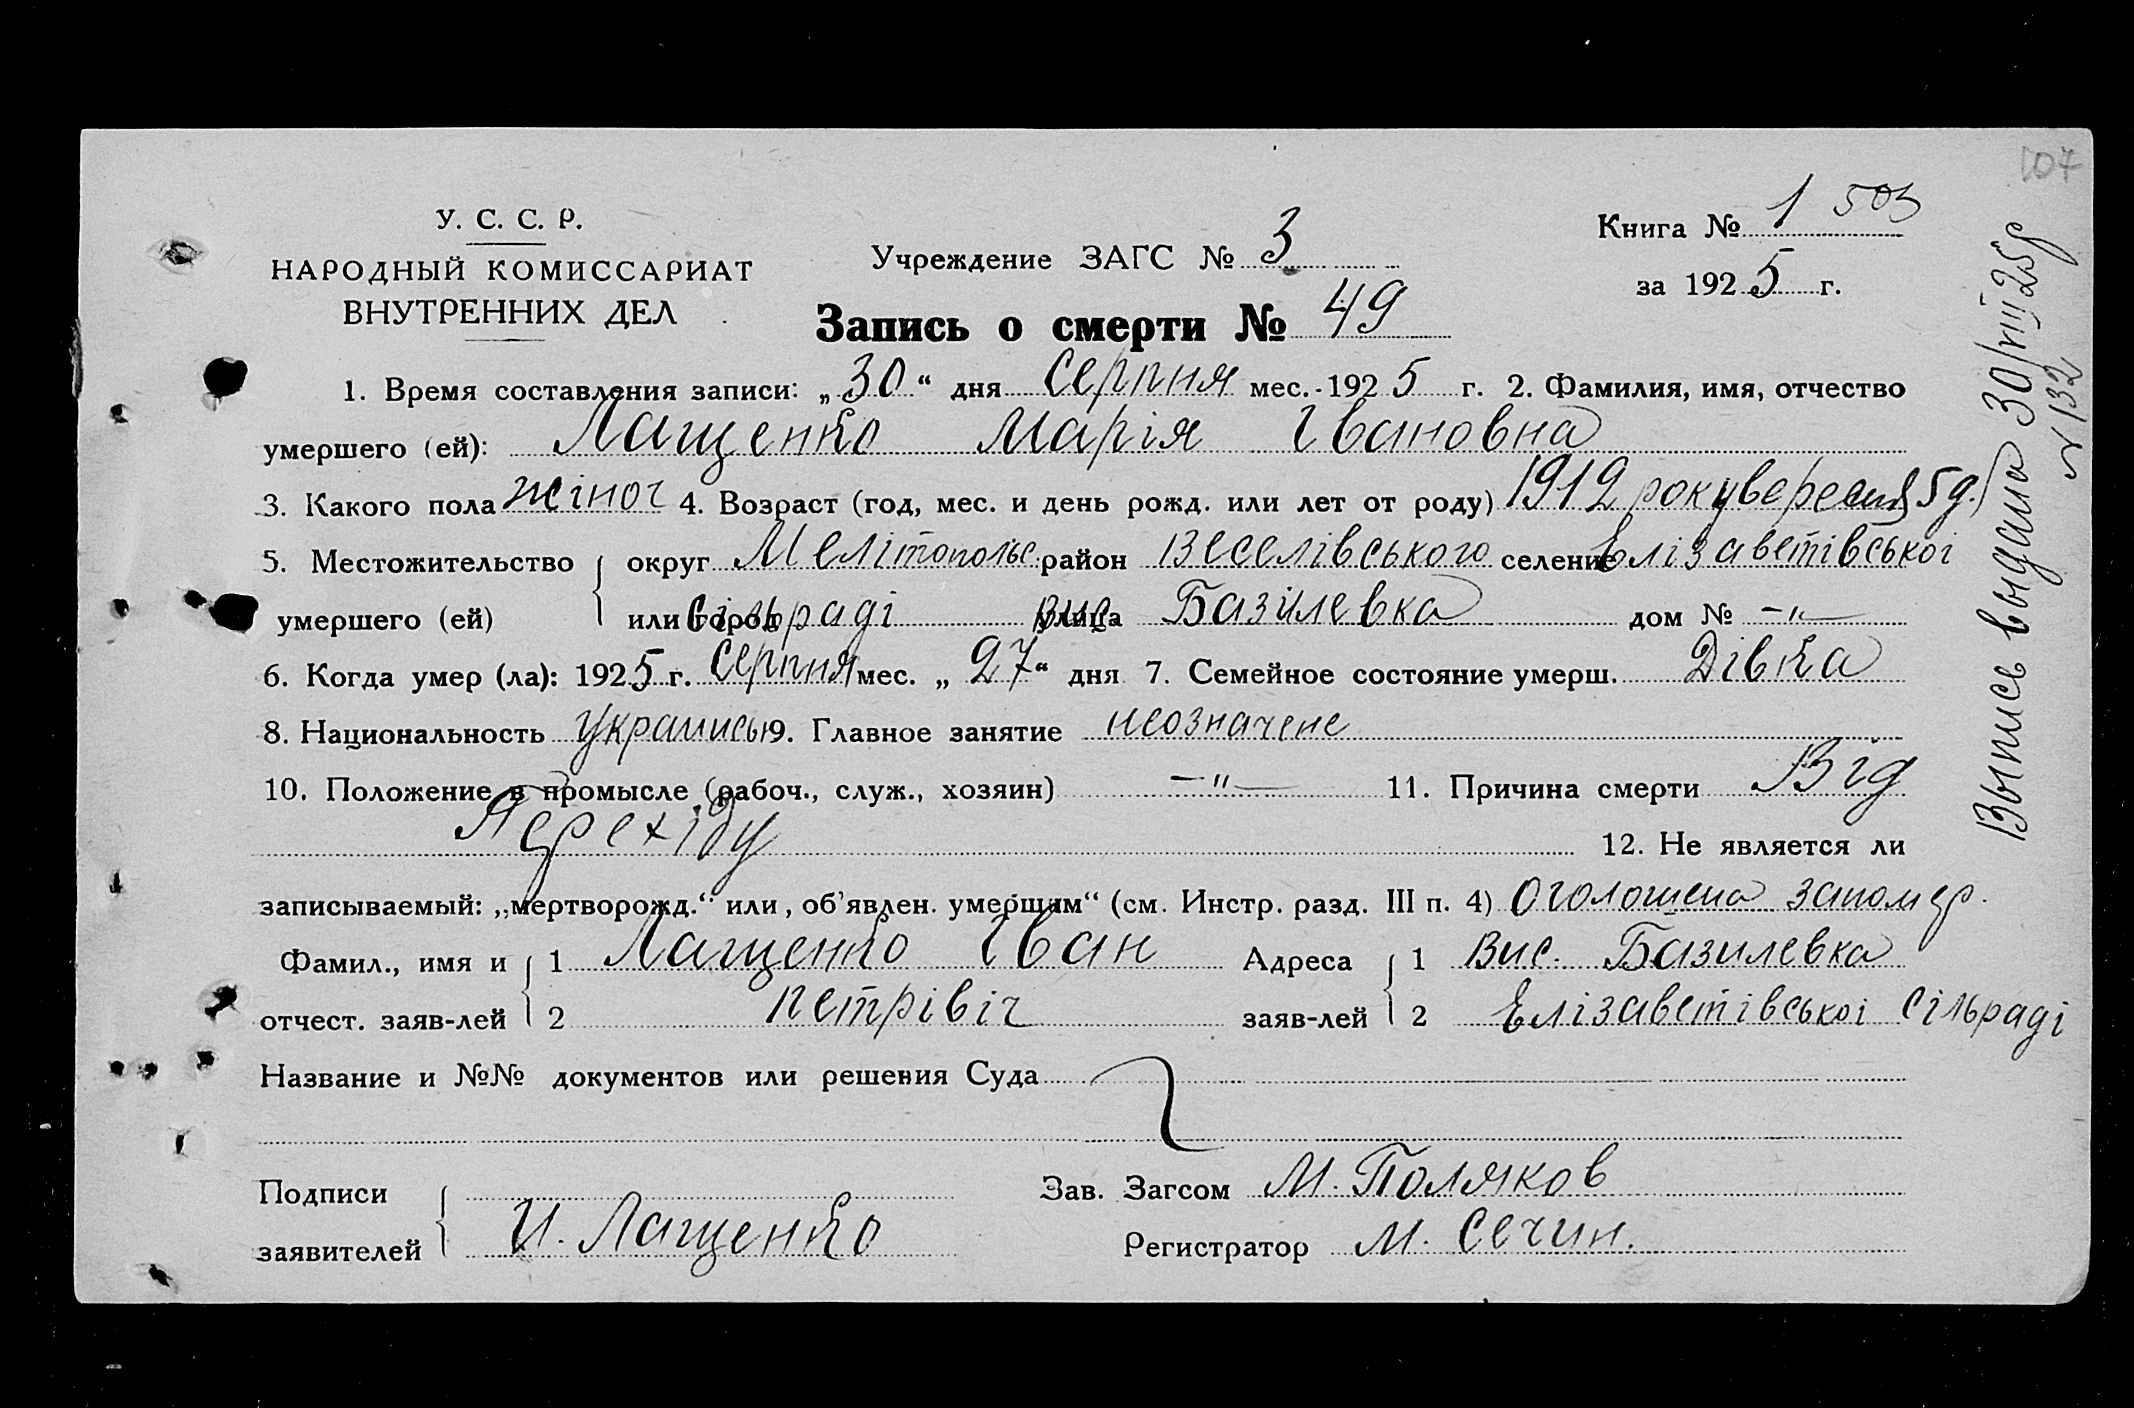 107
У. С. С. Р.
НАРОДНЫЙ КОМИССАРИАТ
ВНУТРЕННИХ ДЕЛ
Учреждение ЗАГС № 3
Книга № 1 503
за 1925 г.
Запись о смерти № 49
1. Время составления записи: „30“ дня Серпня мес.-1925 г. 2. Фамилия, имя, отчество
умершего (ей): Лащенко Марія Івановна
3. Какого пола жіноч 4. Возраст (год, мес. и день рожд. или лет от роду) 1912 року вересня 5 д.
5. Местожительство округ Мелітопольс. район Веселівського селение Елізаветівської
умершего (ей) или город сільраді улица вис. Базилевка дом № -„-
6. Когда умер (ла): 1925 г. Серпня мес. „27“ дня 7. Семейное состояние умерш. Дівка
8. Национальность 9. Главное занятие неозначене
10. Положение в промысле (рабоч., служ., хозяин) -„- 11. Причина смерти Від
12. Не является ли
записываемый: „мертворожд.“ или, об'явлен. умершим“ (см. Инстр. разд. III п. 4) Оголошена запомер.
Фамил., имя и 1 Лащенко Іван Адреса 1 Вис. Базилевка
отчест. заяв-лей 2 петрівіч заяв-лей 2 Елізаветівської сільраді
Название и №№ документов или решения Суда
Подписи Зав. Загсом М. Поляков
заявителей И. Лащенко Регистратор М. Сечин.
Выпись выдана 30/VIII 25 р
№ 132